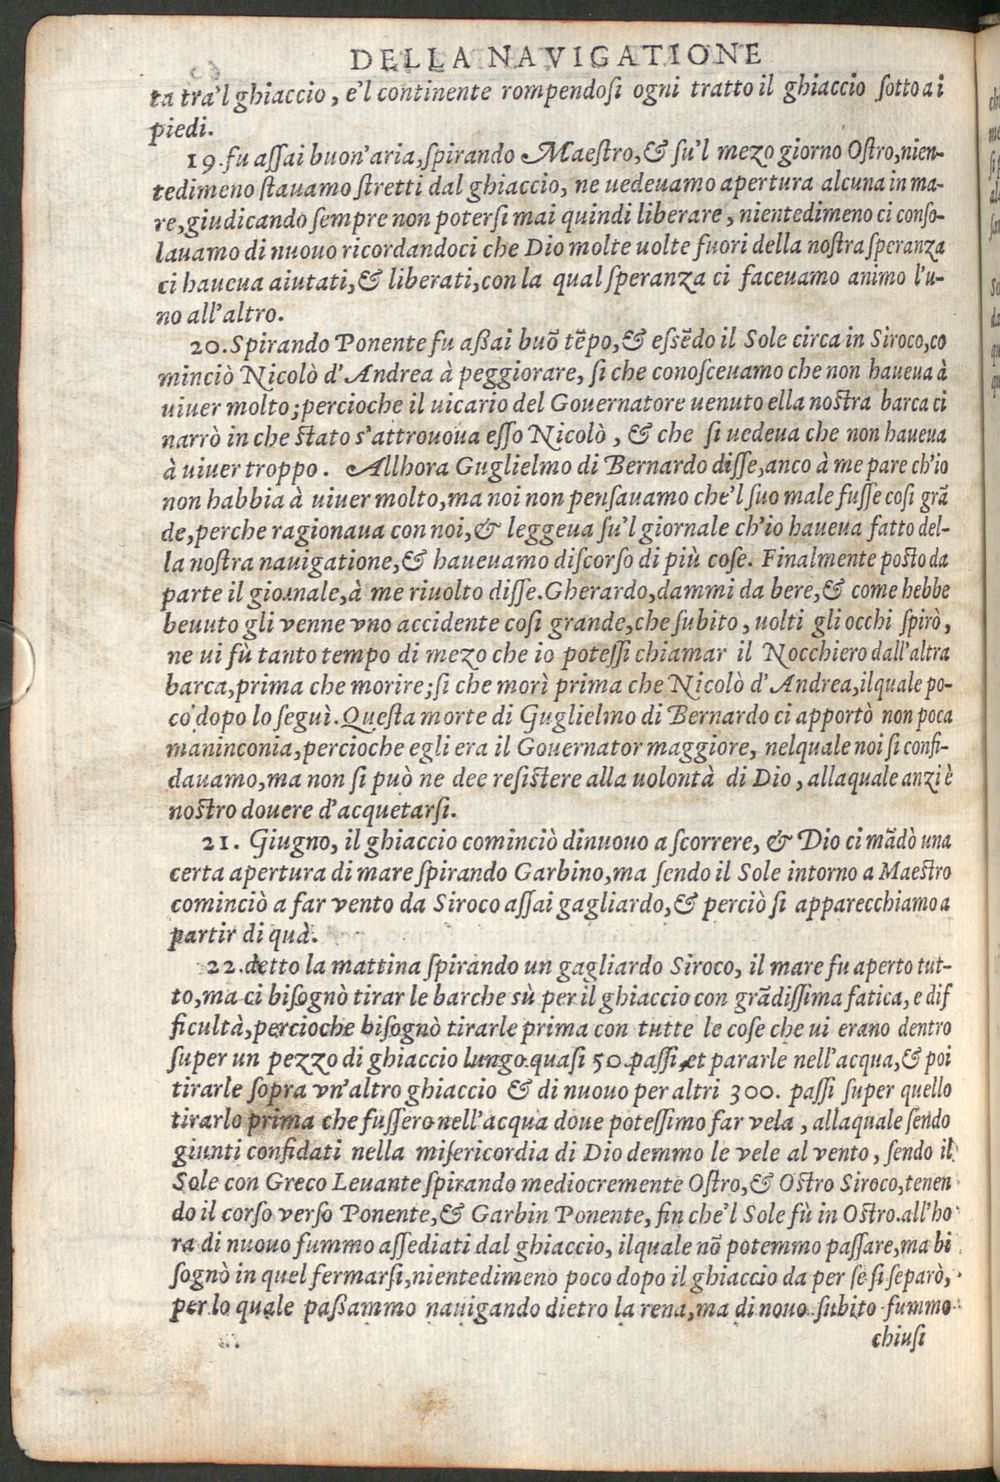 DELLA NAVIGATIONE
ta tra'l ghiaccio, e'l continente rompendosi ogni tratto il ghiaccio sotto a i
piedi.
19. fu assai buon'aria, spirando Maestro, & su'l mezo giorno Ostro, nien-
tedimeno stauamo stretti dal ghiaccio, ne uedeuamo apertura alcuna in ma-
re, giudicando sempre non potersi mai quindi liberare, nientedimeno ci conso-
lauamo di nuouo ricordandoci che Dio molte uolte fuori della nostra speranza
ci haueua aiutati, & liberati, con la qual speranza ci faceuamo animo l'u-
no all'altro.
20. Spirando Ponente fu aßai buõ tẽpo, & essẽdo il Sole circa in Siroco, co
minciò Nicolò d'Andrea à peggiorare, si che conosceuamo che non haueua à
uiuer molto; percioche il uicario del Gouernatore uenuto ella nostra barca ci
narrò in che stato s'attrououa esso Nicolò, & che si uedeua che non haueua
à uiuer troppo. Allhora Guglielmo di Bernardo disse, anco à me pare ch'io
non habbia à uiuer molto, ma noi non pensauamo che'l suo male fusse cosi grã
de, perche ragionaua con noi, & leggeua su'l giornale ch'io haueua fatto del-
la nostra nauigatione, & haueuamo discorso di più cose. Finalmente posto da
parte il giornale, à me riuolto disse. Gherardo, dammi da bere, & come hebbe
beuuto gli venne vno accidente cosi grande, che subito, uolti gli occhi spirò,
ne ui fù tanto tempo di mezo che io potessi chiamar il Nocchiero dall'altra
barca, prima che morire; si che morì prima che Nicolò d'Andrea, il quale po-
co dopo lo seguì. Questa morte di Guglielmo di Bernardo ci apportò non poca
maninconia, percioche egli era il Gouernator maggiore, nelquale noi si confi-
dauamo, ma non si può ne dee resistere alla uolontà di Dio, allaquale anzi è
nostro douere d'acquetarsi.
21. Giugno, il ghiaccio cominciò dinuouo a scorrere, & Dio ci mãdò una
certa apertura di mare spirando Garbino, ma sendo il Sole intorno a Maestro
cominciò a far vento da Siroco assai gagliardo, & perciò si apparecchiamo a
partir di quà.
22. detto la mattina spirando un gagliardo Siroco, il mare fu aperto tut-
to, ma ci bisognò tirar le barche sù per il ghiaccio con grãdissima fatica, e dif
ficultà, percioche bisognò tirarle prima con tutte le cose che ui erano dentro
super un pezzo di ghiaccio lungo quasi 50. passi, et pararle nell'acqua, & poi
tirarle sopra vn'altro ghiaccio & di nuouo per altri 300. passi super quello
tirarlo prima che fussero nell'acqua doue potessimo far vela, allaquale sendo
giunti confidati nella misericordia di Dio demmo le vele al vento, sendo il
Sole con Greco Leuante spirando mediocremente Ostro, & Ostro Siroco, tenen
do il corso verso Ponente, & Garbin Ponente, fin che'l Sole fù in Ostro. all'ho
ra di nuouo fummo assediati dal ghiaccio, ilquale nõ potemmo passare, ma bi
sognò in quel fermarsi, nientedimeno poco dopo il ghiaccio da per se si separò,
per lo quale paßammo nauigando dietro la rena, ma di nouo subito fummo
chiusi